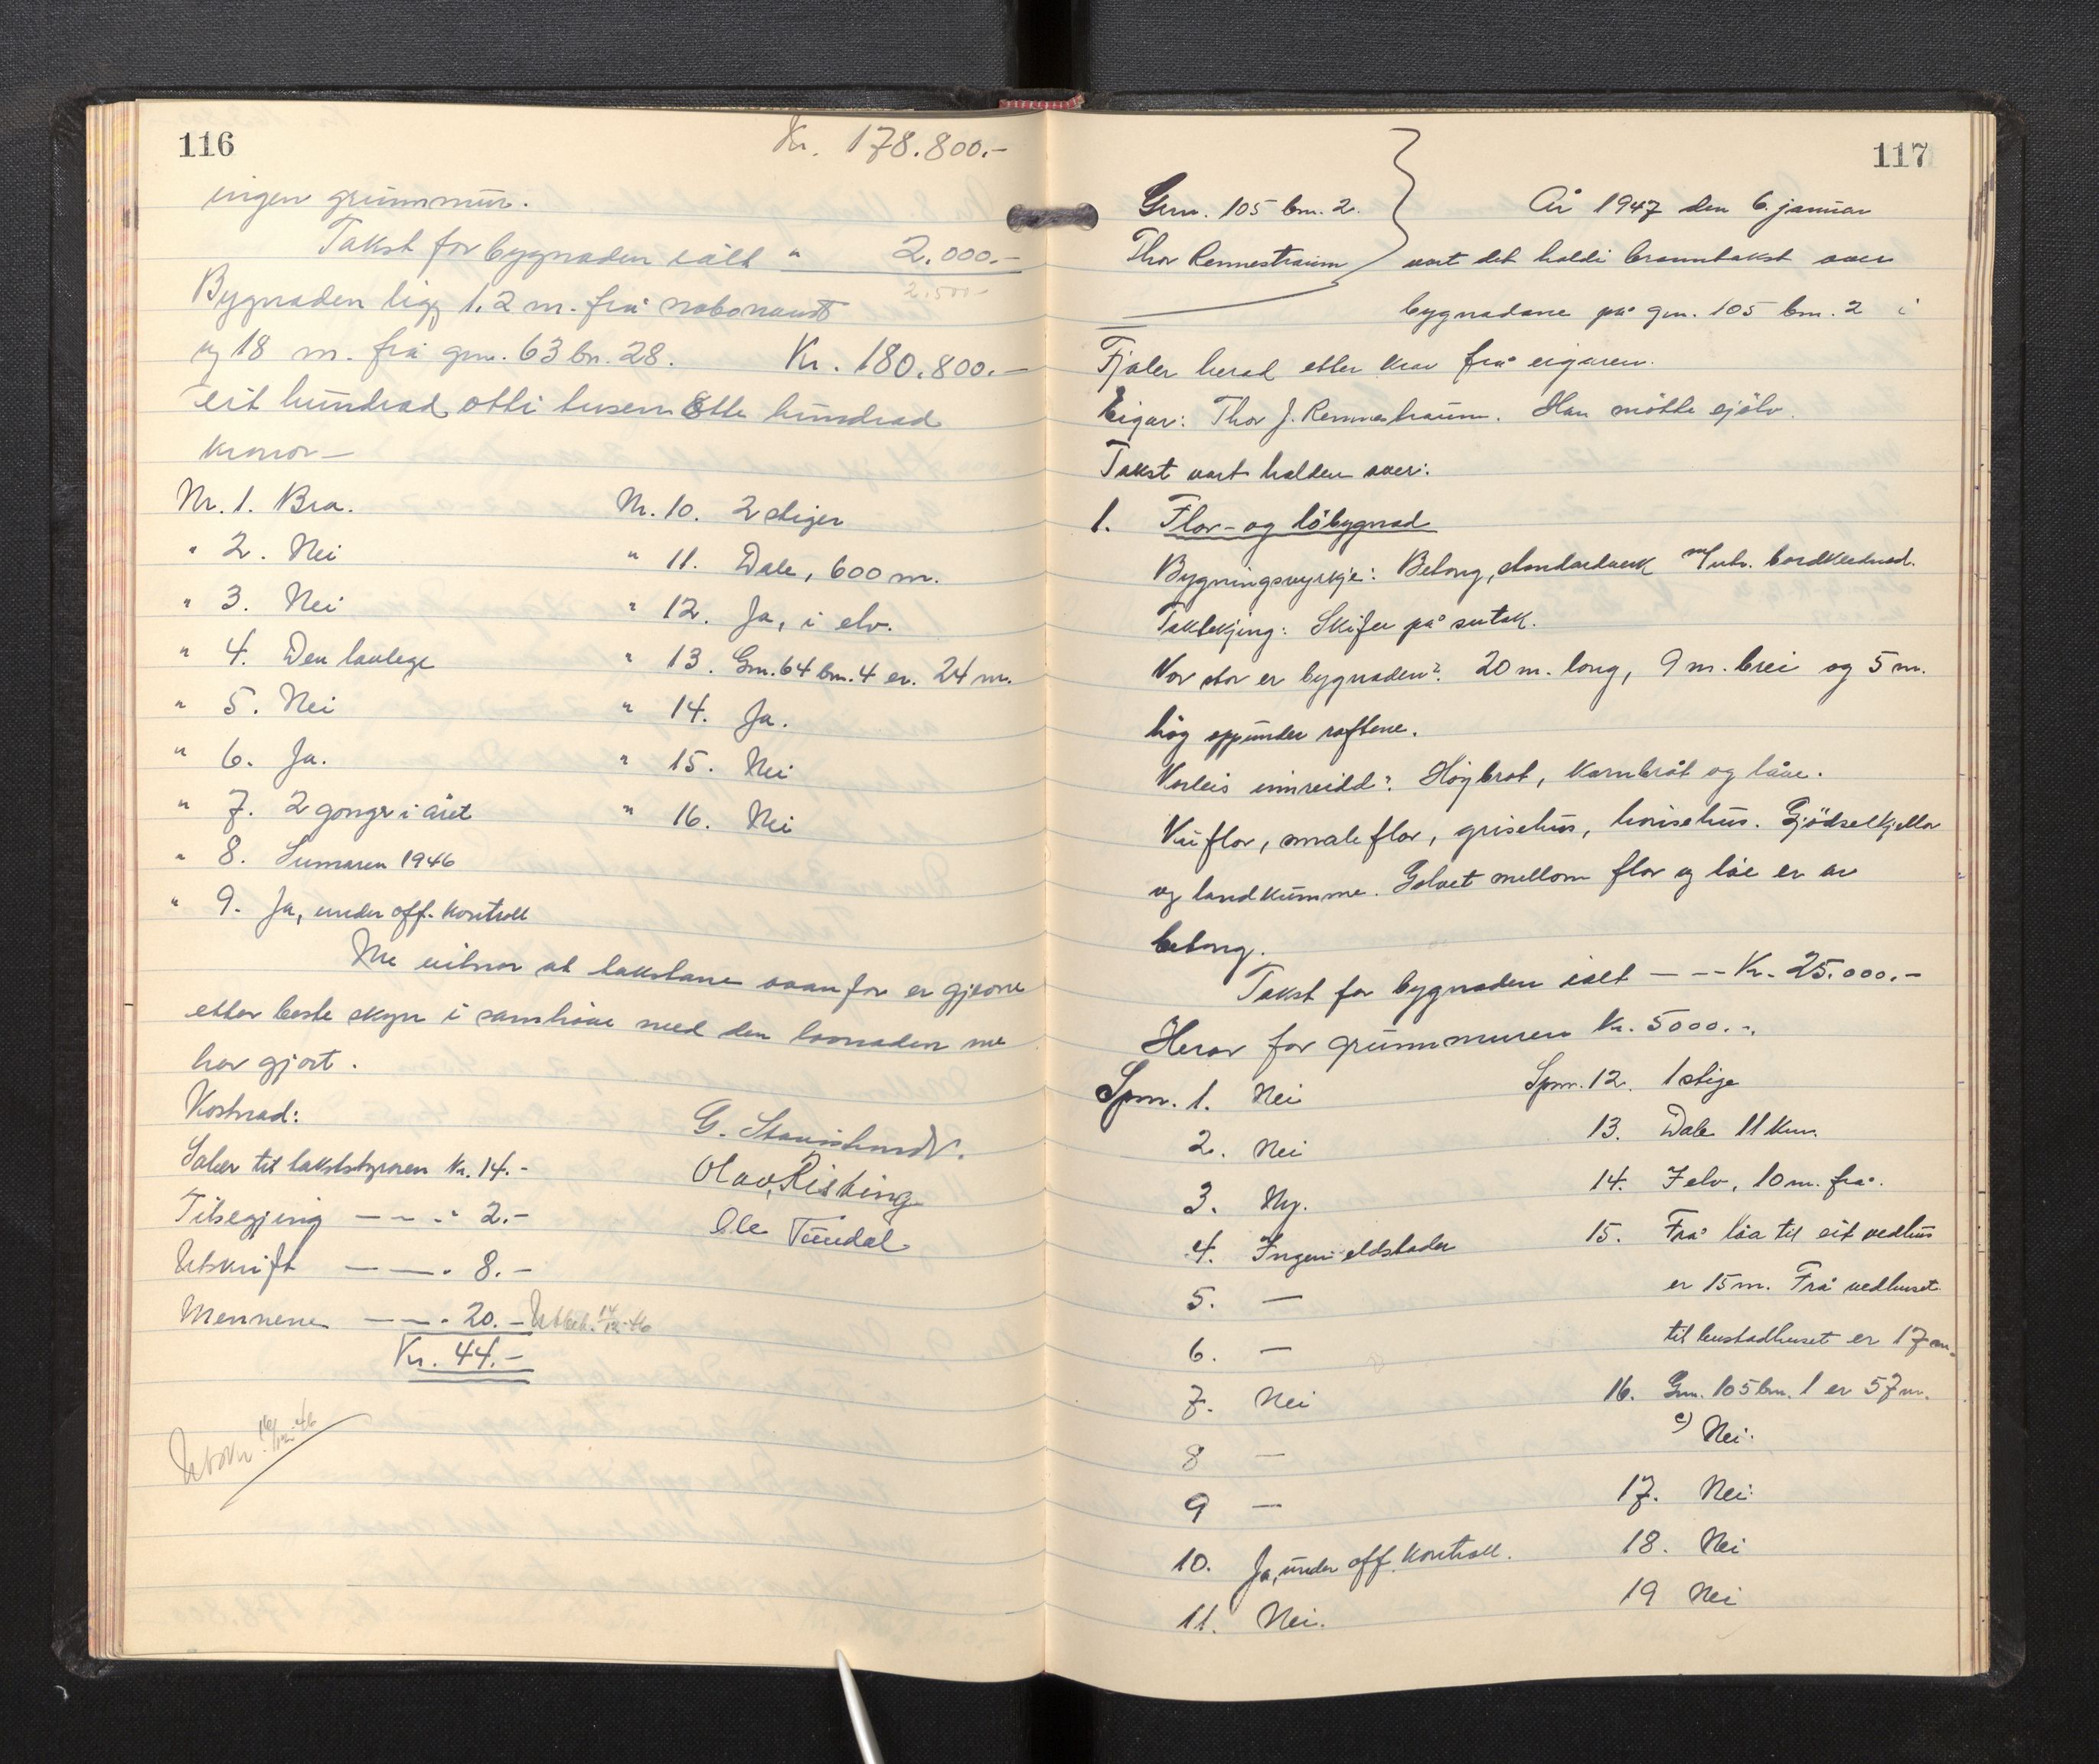 116
Kr. 178.800.-
ingen grunnmur.
Takst for bygnaden ialt " 2.000.-
2.500-
Bygnaden ligg 1.2 m. frå nabonaust
og 18 m. frå gnr. 63 bn. 28. Kr. 180.800.-
eit hundrad otti tusen åtte hundrad
kronor -
Nr. 1. Bra.
" 2. Nei
" 3. Nei
" 4. Den lovlege
" 5. Nei
" 6. Ja.
" 7. 2 gonger i året
" 8. Sumaren 1946
" 9. Ja, under off. kontroll
Nr. 10. 2 stiger
" 11. Dale, 600 m.
" 12. Ja, i elv.
" 13. Gnr. 64 bnr. 4 er. 24 m.
" 14. Ja.
" 15. Nei
" 16. Nei
Me vitnar at takstane ovanfor er gjevne
etter beste skyn i samhøve med den lovnaden me
har gjort.
Kostnad:
Salær til takststyraren Kr. 14.-
Tilsegjing — — " 2.-
Utskrift — — " 8.-
Mennene — — " 20.- Utbet. 14/12-46
Kr. 44.-
G.
Olav Risting
Ole Tundal
Utskr. 14/12-46
117
Gnr. 105 bnr. 2.
Thor Rennestraum
År 1947 den 6. januar
vart det haldi branntakst over
bygnadane på gnr. 105 bnr. 2 i
Fjaler herad etter krav frå eigaren.
Eigar: Thor J. Rennestraum. Han møtte sjölv.
Takst vart halden over:
1. Flor- og löbygnad
Bygningsvyrkje: Betong, standardverk m/utv. bordklednad.
Taktekjing: Skifer på sutak.
Kor stor er bygnaden? 20 m. long, 9 m. brei og 5 m.
høg oppunder raftene.
Korleis innreidd? Höybrot, kornbråt og låve.
Kuflor, smaleflor, grisehus, hönsehus. Gjödselkjellar
og landkumme. Golvet mellom flor og löe er av
betong.
Takst for bygnaden ialt — — — Kr. 25.000.-
Herav for grunnmuren Kr. 5000.-.
Spm. 1. Nei
2. Nei
3. Ny.
4. Ingen eldstader
5. —
6. —
7. Nei
8 —
9 —
10. Ja, under off. kontroll.
11. Nei.
Spm. 12. 1 stige
13. Dale 11 km.
14. I elv, 10 m. frå.
15. Frå löa til eit vedhus
er 15 m. Frå vedhuset
til bustadhuset er 17 m.
16. Gnr. 105 bnr. 1 er 57 m.
c) Nei.
17. Nei.
18. Nei
19 Nei